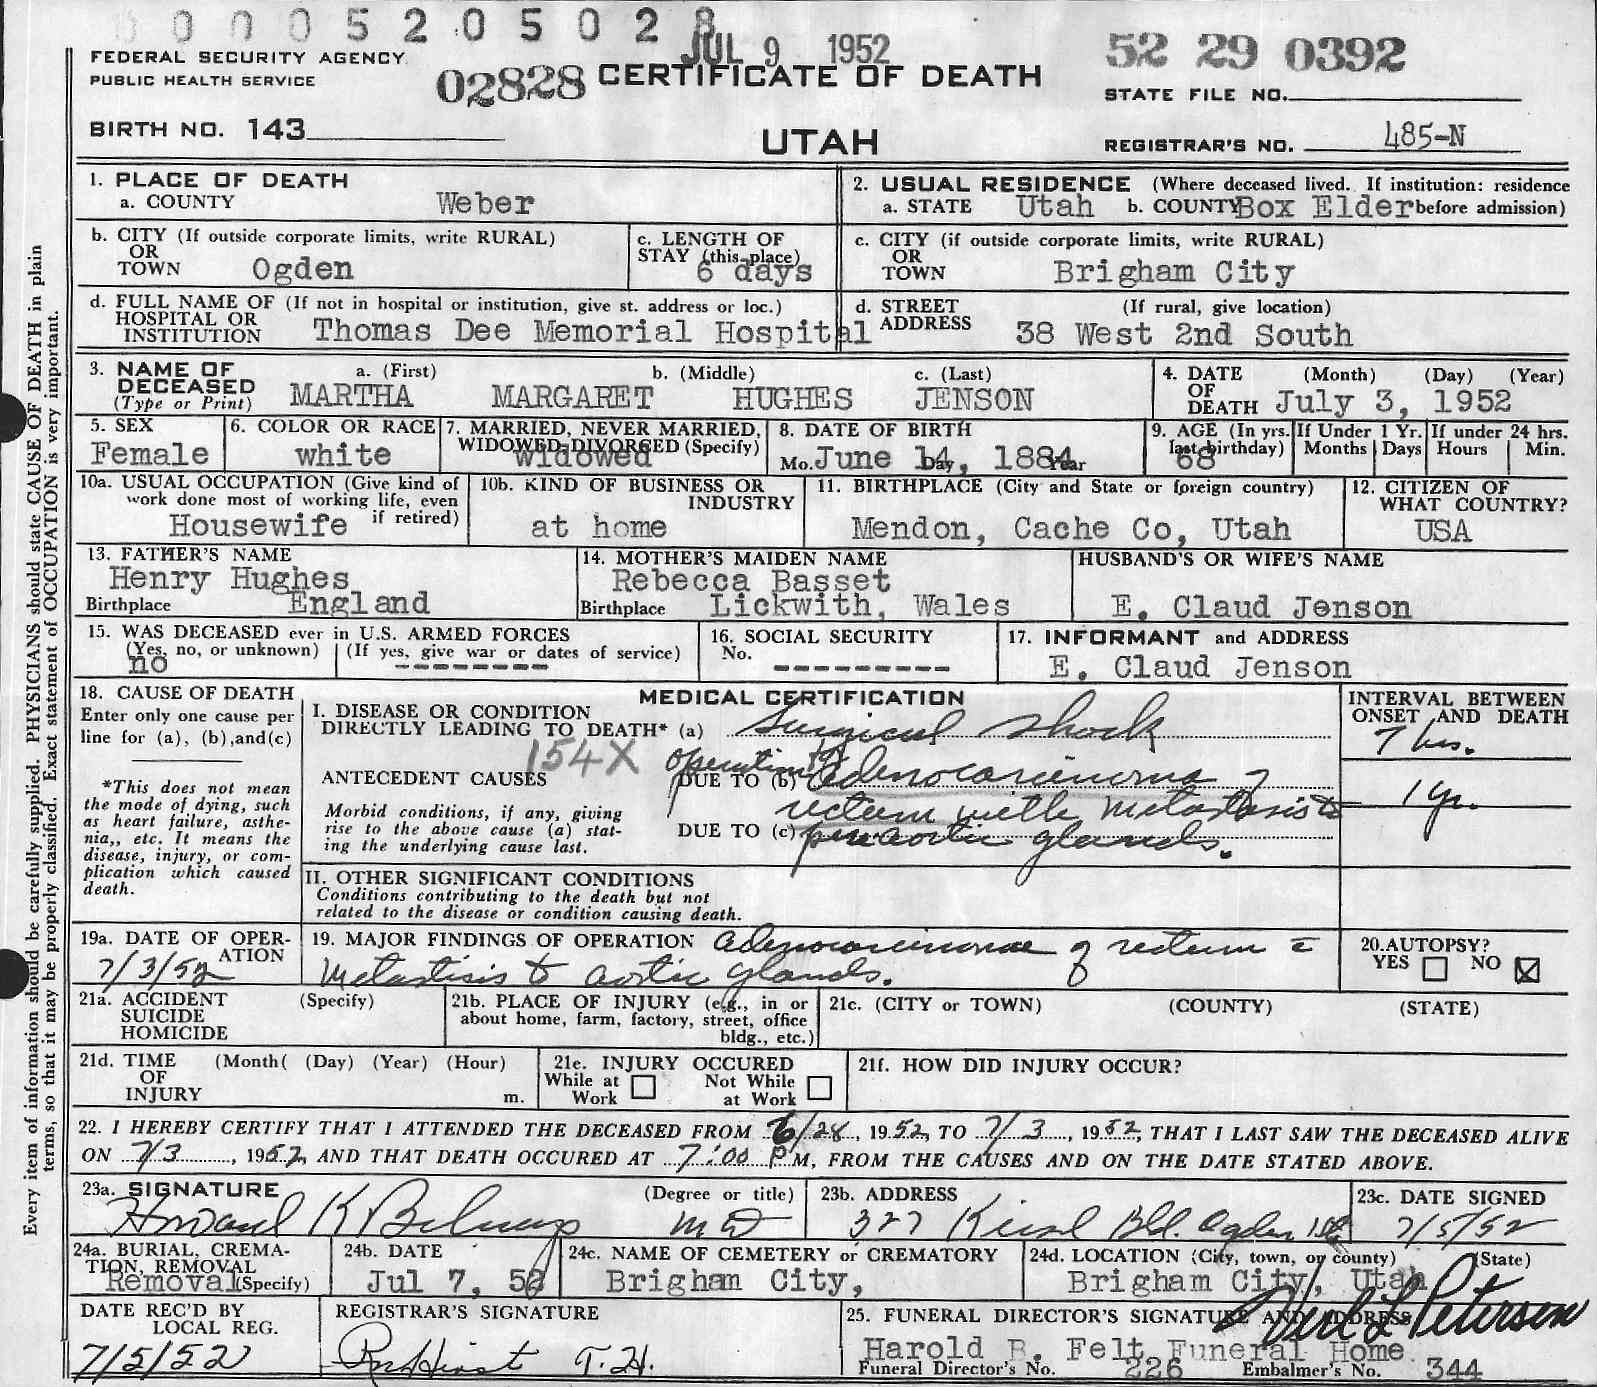 0 0 0 5 2 0 5 0 2 8
JUL 9 1952
52 29 0392
FEDERAL SECURITY AGENCY
PUBLIC HEALTH SERVICE
02828
CERTIFICATE OF DEATH
STATE FILE NO.
BIRTH NO. 143
UTAH
REGISTRAR'S NO. 485-N
Every item of information should be carefully supplied. PHYSICIANS should state CAUSE OF DEATH in plain
terms, so that it may be properly classified. Exact statement of OCCUPATION is very important.
1. PLACE OF DEATH
a. COUNTY Weber
2. USUAL RESIDENCE (Where deceased lived. If institution: residence
a. STATE Utah b. COUNTY Box Elder before admission)
b. CITY (If outside corporate limits, write RURAL)
OR
TOWN Ogden
c. LENGTH OF
STAY (this place)
6 days
c. CITY (if outside corporate limits, write RURAL)
OR
TOWN Brigham City
d. FULL NAME OF (If not in hospital or institution, give st. address or loc.)
HOSPITAL OR
INSTITUTION Thomas Dee Memorial Hospital
d. STREET (If rural, give location)
ADDRESS 38 West 2nd South
3. NAME OF a. (First) b. (Middle) c. (Last)
DECEASED MARTHA MARGARET HUGHES JENSON
(Type or Print)
4. DATE (Month) (Day) (Year)
OF
DEATH July 3, 1952
5. SEX
Female
6. COLOR OR RACE
white
7. MARRIED, NEVER MARRIED,
WIDOWED DIVORCED (Specify)
widowed
8. DATE OF BIRTH
Mo. June Day 14, 1884 Year
9. AGE (In yrs.
last birthday)
68
If Under 1 Yr.
Months Days
If under 24 hrs.
Hours Min.
10a. USUAL OCCUPATION (Give kind of
work done most of working life, even
Housewife if retired)
10b. KIND OF BUSINESS OR
INDUSTRY
at home
11. BIRTHPLACE (City and State or foreign country)
Mendon, Cache Co, Utah
12. CITIZEN OF
WHAT COUNTRY?
USA
13. FATHER'S NAME
Henry Hughes
Birthplace England
14. MOTHER'S MAIDEN NAME
Rebecca Basset
Birthplace Lickwith, Wales
HUSBAND'S OR WIFE'S NAME
E. Claud Jenson
15. WAS DECEASED ever in U.S. ARMED FORCES
(Yes, no, or unknown) (If yes, give war or dates of service)
no ---------
16. SOCIAL SECURITY
No. ----------
17. INFORMANT and ADDRESS
E. Claud Jenson
18. CAUSE OF DEATH
Enter only one cause per
line for (a), (b), and (c)
*This does not mean
the mode of dying, such
as heart failure, asthe-
nia,, etc. It means the
disease, injury, or com-
plication which caused
death.
MEDICAL CERTIFICATION
INTERVAL BETWEEN
ONSET AND DEATH
I. DISEASE OR CONDITION
DIRECTLY LEADING TO DEATH* (a) Surgical shock
7 hrs.
154X
ANTECEDENT CAUSES
Operation for
DUE TO (b) Adenocarcinoma of
1 yr.
Morbid conditions, if any, giving
rise to the above cause (a) stat-
ing the underlying cause last.
rectum with metastasis to
DUE TO (c) preaortic glands.
II. OTHER SIGNIFICANT CONDITIONS
Conditions contributing to the death but not
related to the disease or condition causing death.
19a. DATE OF OPER-
ATION
7/3/52
19. MAJOR FINDINGS OF OPERATION Adenocarcinomae of rectum c̄
Metastisis to aortic glands.
20. AUTOPSY?
YES NO
21a. ACCIDENT (Specify)
SUICIDE
HOMICIDE
21b. PLACE OF INJURY (e.g., in or
about home, farm, factory, street, office
bldg., etc.)
21c. (CITY or TOWN) (COUNTY) (STATE)
21d. TIME (Month( (Day) (Year) (Hour)
OF
INJURY m.
21e. INJURY OCCURED
While at Not While
Work at Work
21f. HOW DID INJURY OCCUR?
22. I HEREBY CERTIFY THAT I ATTENDED THE DECEASED FROM 6/28, 1952, TO 7/3, 1952, THAT I LAST SAW THE DECEASED ALIVE
ON 7/3, 1952, AND THAT DEATH OCCURED AT 7:00 P M, FROM THE CAUSES AND ON THE DATE STATED ABOVE.
23a. SIGNATURE (Degree or title)
Howard K Belnap M D
23b. ADDRESS
327 Kiesel Bld. Ogden
23c. DATE SIGNED
7/5/52
24a. BURIAL, CREMA-
TION, REMOVAL
Removal (Specify)
24b. DATE
Jul 7, 52
24c. NAME OF CEMETERY or CREMATORY
Brigham City,
24d. LOCATION (City, town, or county) (State)
Brigham City, Utah
DATE REC'D BY
LOCAL REG.
7/5/52
REGISTRAR'S SIGNATURE
T. H.
25. FUNERAL DIRECTOR'S SIGNATURE AND ADDRESS
Verl L Petersen
Harold B. Felt Funeral Home
Funeral Director's No. 226 Embalmer's No. 344